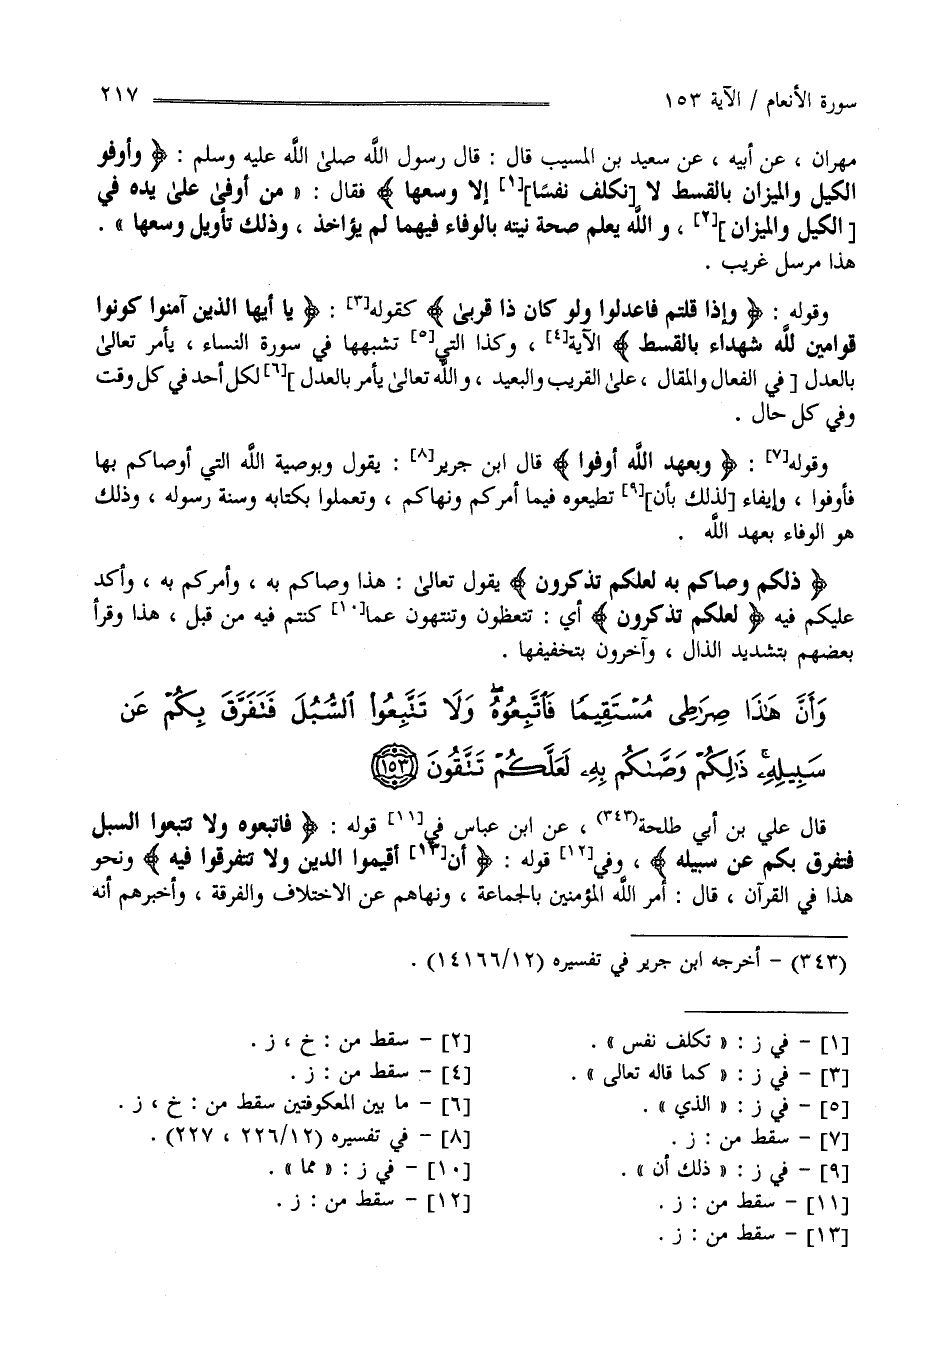 سورة الأنعام / الآية ١٥٣
٢١٧
مهران ، عن أبيه ، عن سعيد بن المسيب قال : قال رسول اللَّه صلىٰ اللَّه عليه وسلم : ﴿ وأوفو
الكيل والميزان بالقسط لا [نكلف نفسًا][١] إلا وسعها ﴾ فقال : « من أوفىٰ علىٰ يده في
[ الكيل والميزان ][٢] ، و اللَّه يعلم صحة نيته بالوفاء فيهما لم يؤاخذ ، وذلك تأويل وسعها » .
هذا مرسل غريب .
وقوله : ﴿ وإذا قلتم فاعدلوا ولو كان ذا قربىٰ ﴾ كقوله[٣] : ﴿ يا أيها الذين آمنوا كونوا
قوامين للَّه شهداء بالقسط ﴾ الآية[٤] ، وكذا التي[٥] تشبهها في سورة النساء ، يأمر تعالىٰ
بالعدل [ في الفعال والمقال ، علىٰ القريب والبعيد ، و اللَّه تعالىٰ يأمر بالعدل ][٦] لكل أحد في كل وقت
وفي كل حال .
وقوله[٧] : ﴿ وبعهد اللَّه أوفوا ﴾ قال ابن جرير[٨] : يقول وبوصية اللَّه التي أوصاكم بها
فأوفوا ، وإيفاء [لذلك بأن][٩] تطيعوه فيما أمركم ونهاكم ، وتعملوا بكتابه وسنة رسوله ، وذلك
هو الوفاء بعهد اللَّه .
﴿ ذلكم وصاكم به لعلكم تذكرون ﴾ يقول تعالىٰ : هذا وصاكم به ، وأمركم به ، وأكد
عليكم فيه ﴿ لعلكم تذكرون ﴾ أي : تتعظون وتنتهون عما[١٠] كنتم فيه من قبل ، هذا وقرأ
بعضهم بتشديد الذال ، وآخرون بتخفيفها .
وَأَنَّ هَٰذَا صِرَٰطِى مُسْتَقِيمًا فَٱتَّبِعُوهُ ۖ وَلَا تَتَّبِعُوا۟ ٱلسُّبُلَ فَتَفَرَّقَ بِكُمْ عَن
سَبِيلِهِۦ ۚ ذَٰلِكُمْ وَصَّىٰكُم بِهِۦ لَعَلَّكُمْ تَتَّقُونَ ١٥٣
قال علي بن أبي طلحة(٣٤٣) ، عن ابن عباس في[١١] قوله : ﴿ فاتبعوه ولا تتبعوا السبل
فتفرق بكم عن سبيله ﴾ ، وفي[١٢] قوله : ﴿ أن[١٣] أقيموا الدين ولا تتفرقوا فيه ﴾ ونحو
هذا في القرآن ، قال : أمر اللَّه المؤمنين بالجماعة ، ونهاهم عن الاختلاف والفرقة ، وأخبرهم أنه
(٣٤٣) - أخرجه ابن جرير في تفسيره (١٤١٦٦/١٢) .
[١] - في ز : « تكلف نفس » .
[٢] - سقط من : خ ، ز .
[٣] - في ز : « كما قاله تعالى » .
[٤] - سقط من : ز .
[٥] - في ز : « الذي » .
[٦] - ما بين المعكوفتين سقط من : خ ، ز .
[٧] - سقط من : ز .
[٨] - في تفسيره (٢٢٦/١٢ ، ٢٢٧) .
[٩] - في ز : « ذلك أن » .
[١٠] - في ز : « مما » .
[١١] - سقط من : ز .
[١٢] - سقط من : ز .
[١٣] - سقط من : ز .